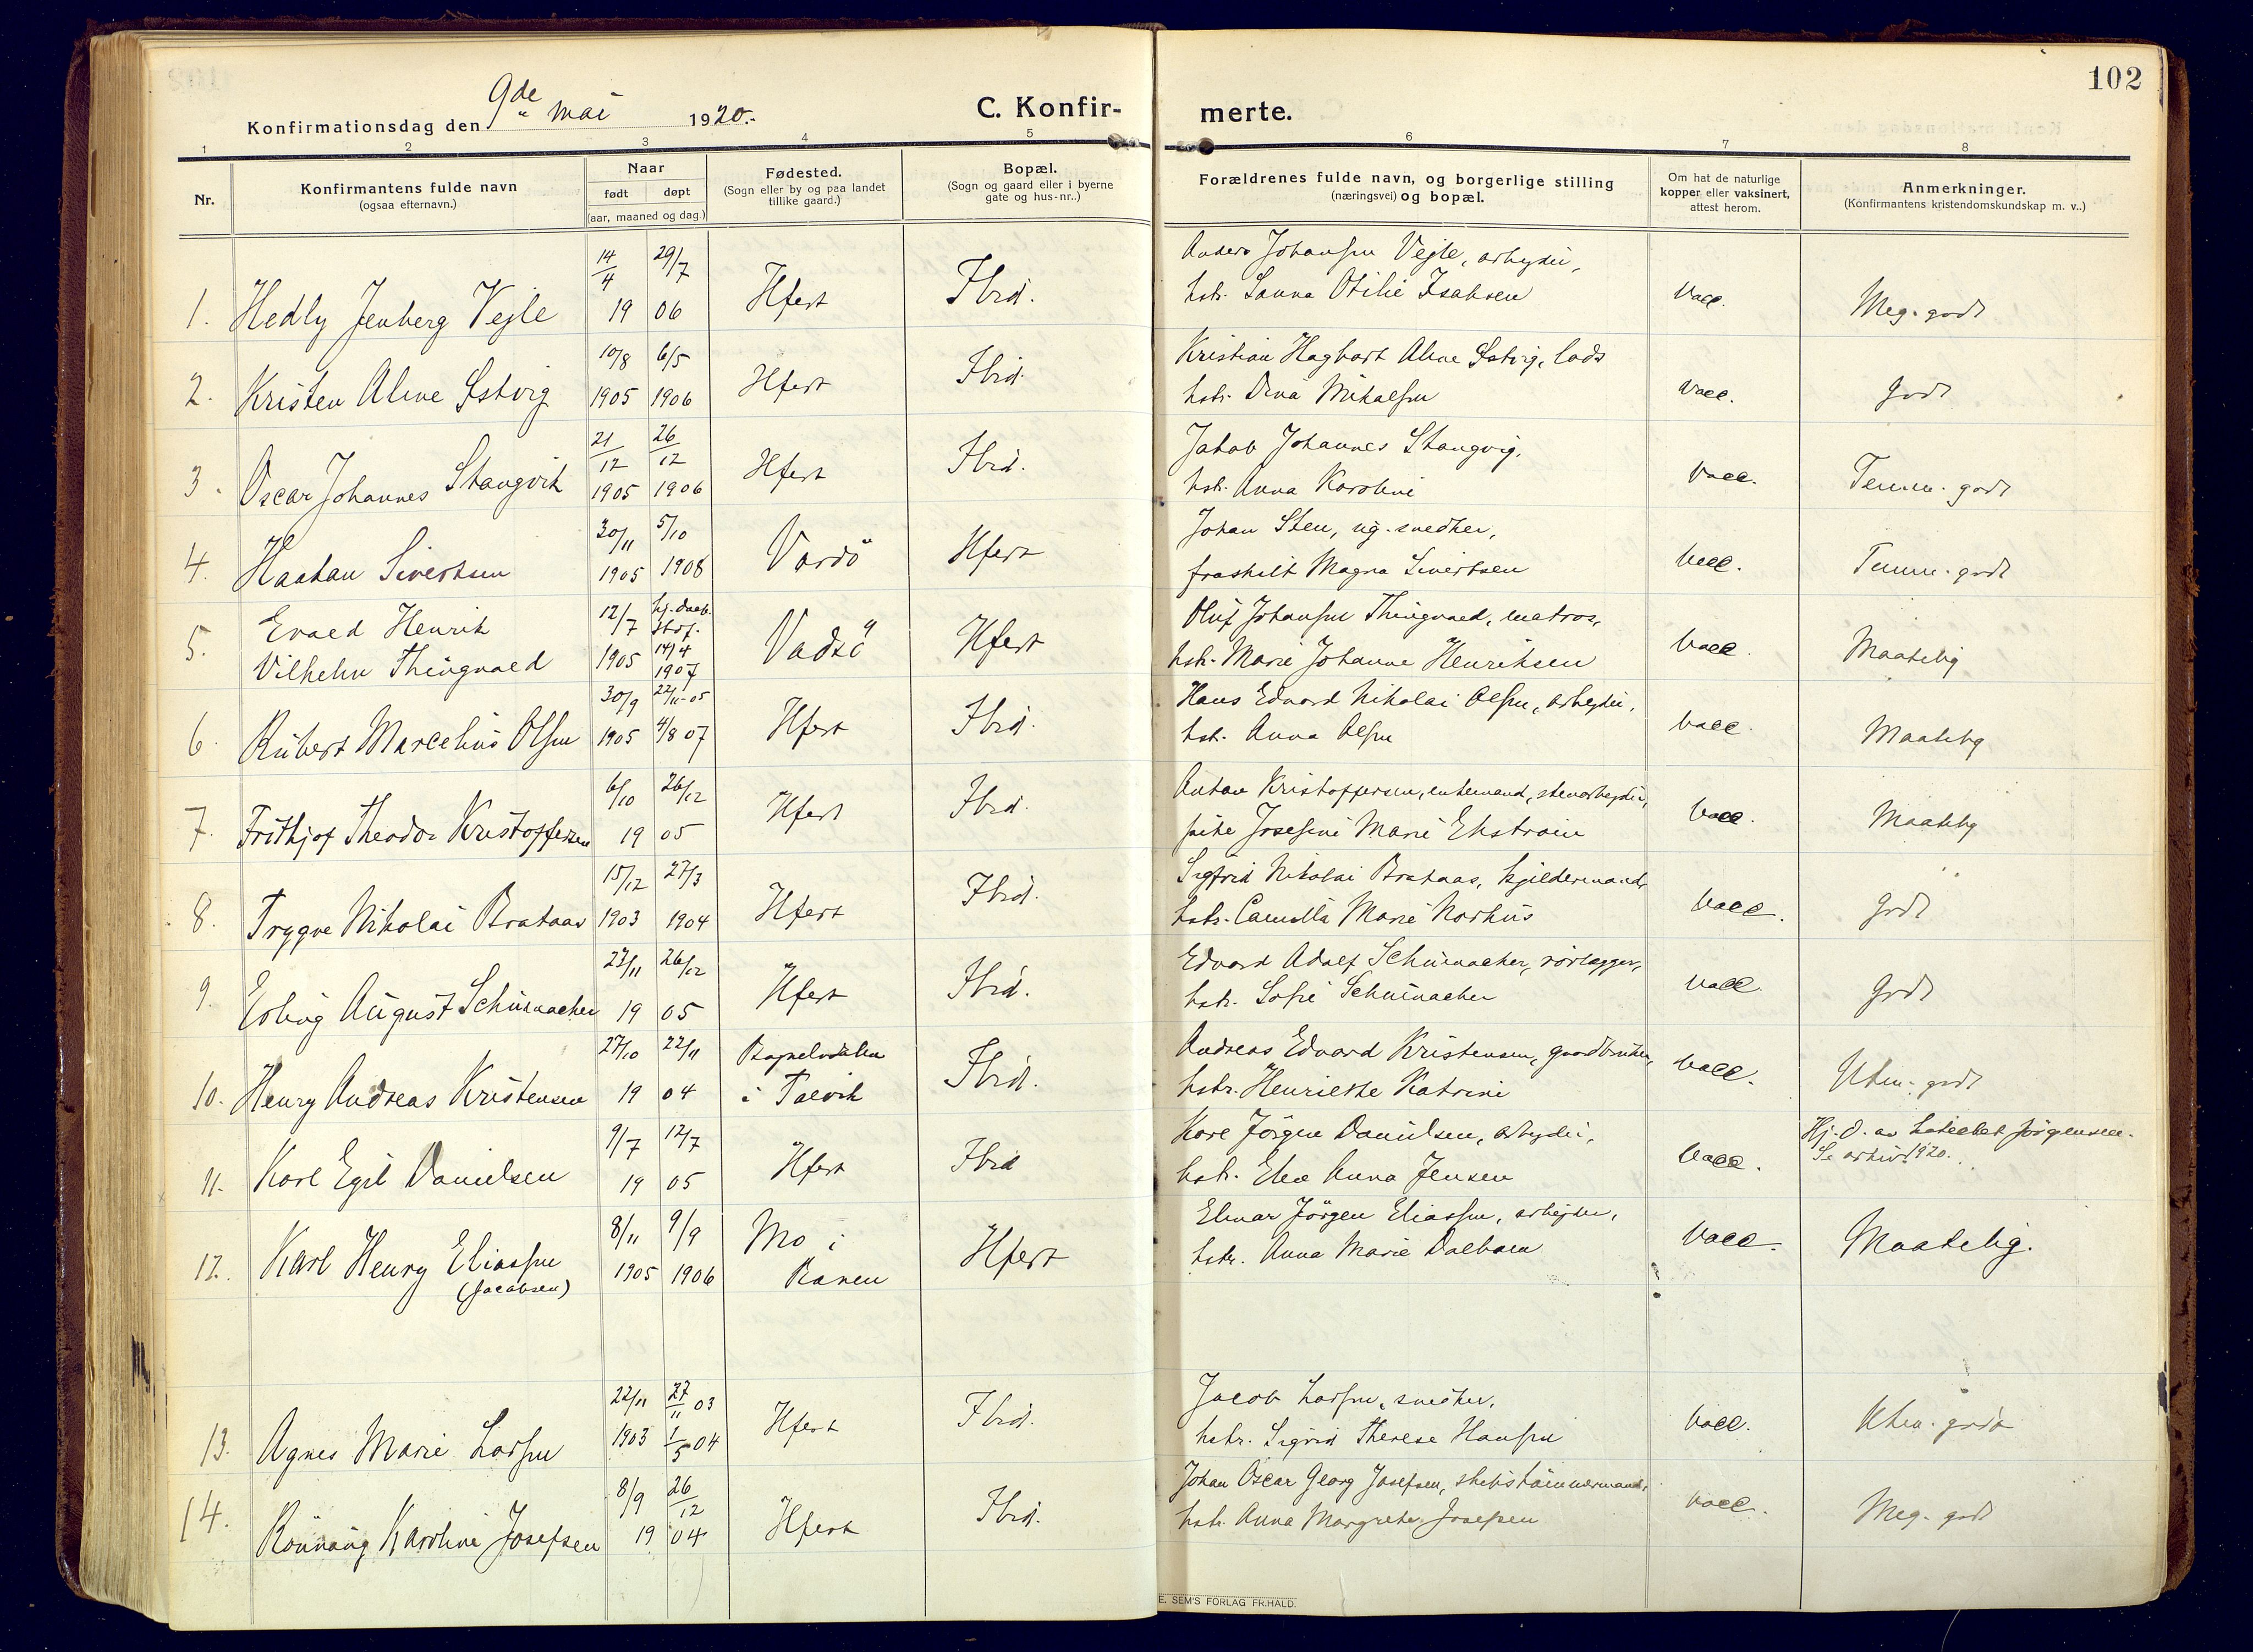 102
Konfirmationsdag den 9de mai 1920.-
C. Konfir- merte.
1 2 3 4 5 6 7 8
Nr.
Konfirmantens fulde navn
(ogsaa efternavn.)
Naar
født døpt
(aar, maaned og dag.)
Fødested.
(Sogn eller by og paa landet
tillike gaard.)
Bopæl.
(Sogn og gaard eller i byerne
gate og hus-nr..)
Forældrenes fulde navn, og borgerlige stilling
(næringsvei) og bopæl.
Om hat de naturlige
kopper eller vaksinert,
attest herom.
Anmerkninger.
(Konfirmantens kristendomskundskap m. v..)
14/4 29/7
Anders Johansen Vejle, arbeyder,
1. Hedly Jenberg Vejle 19 06 Hfest Ibid. hstr. Sanna Otilie Isaksen Vacc. Meg. godt
10/8 6/5
Kristian Hagbart Aline Østvig, lods
2. Kristen Aline Østvig 1905 1906 Hfest Ibid. hstr. Dina Mikalsen Vacc. Godt
21/12 26/12
Jakob Johannes Stangvig,
3. Oscar Johannes Stangvik 1905 1906 Hfest Ibid. hstr. Anna Karoline Vacc. Temm. godt
30/11 5/10
Johan Sten, ug. snedker,
4. Haakan Sivertsen 1905 1908 Vardö Hfest fraskilt Magna Sivertsen Vacc. Temm. godt
5. Evald Henrik 12/7 hj. daab. Vadsö Hfest Oluf Johansen Thingvald, matros, Vacc. Maatelig
Vilhelm Thingvald 1905 14/4 1907 hstr. Marie Johanne Henriksen
30/9 22/11-05
Hans Edvard Nikolai Olsen, arbeyder,
6. Rubert Marcelius Olsen 1905 4/8 07 Hfest Ibid. hst. Anna Olsen Vacc. Maatelig
6/10 26/12
Anton Kristoffersen, enkemand, stenarbeyder,
7. Frithjof Theodor Kristoffersen 19 05 Hfest Ibid. pike Josefine Marie Ekstrøm Vacc. Maatelig
15/12 27/3
Sigfrid Nikolai Brataas, kjeldermand,
8. Trygve Nikolai Brataas 1903 1904 Hfest Ibid. hstr. Camilla Marie Norhus Vacc. Godt
27/11 26/12
Edvard Adolf Schumacher, rörlægger,
9. Erling August Schumacher 19 05 Hfest Ibid. hstr. Sofie Schumacher Vacc. Godt
27/10 22/11
Andreas Edvard Kristensen, gaardbruker,
10. Henry Andreas Kristensen 19 04 i Talvik Ibid. hstr. Henriette Katrine Vacc. Uten. godt
9/7 12/7
Karl Jörgen Danielsen, arbeyder,
Hj. d. av Jörgensen.
11. Karl Egil Danielsen 19 05 Hfest Ibid hstr. Anna Jensen Vacc. Se arkiv 1920.
8/11 9/9 Mo i
Elmar Jörgen Eliassen, arbejder,
12. Karl Henry Eliassen 1905 1906 Ranen Hfest hstr. Anna Marie Dalbaen Vacc. Maatelig.
(Jacobsen)
22/11 27/11 03
Jacob Larsen, snedker,
13. Agnes Marie Larsen 1903 1/5 04 Hfest Ibid. hstr. Sigrid Therese Hansen Vacc. Uten. godt
8/9 26/12
Johan Oscar Georg Josefsen, skibstømmermand,
14. Rönnaug Karoline Josefsen 19 04 Hfest Ibid. hstr. Anna Margrethe Josefsen Vacc. Meg. godt
E. SEM'S FORLAG FR.HALD.